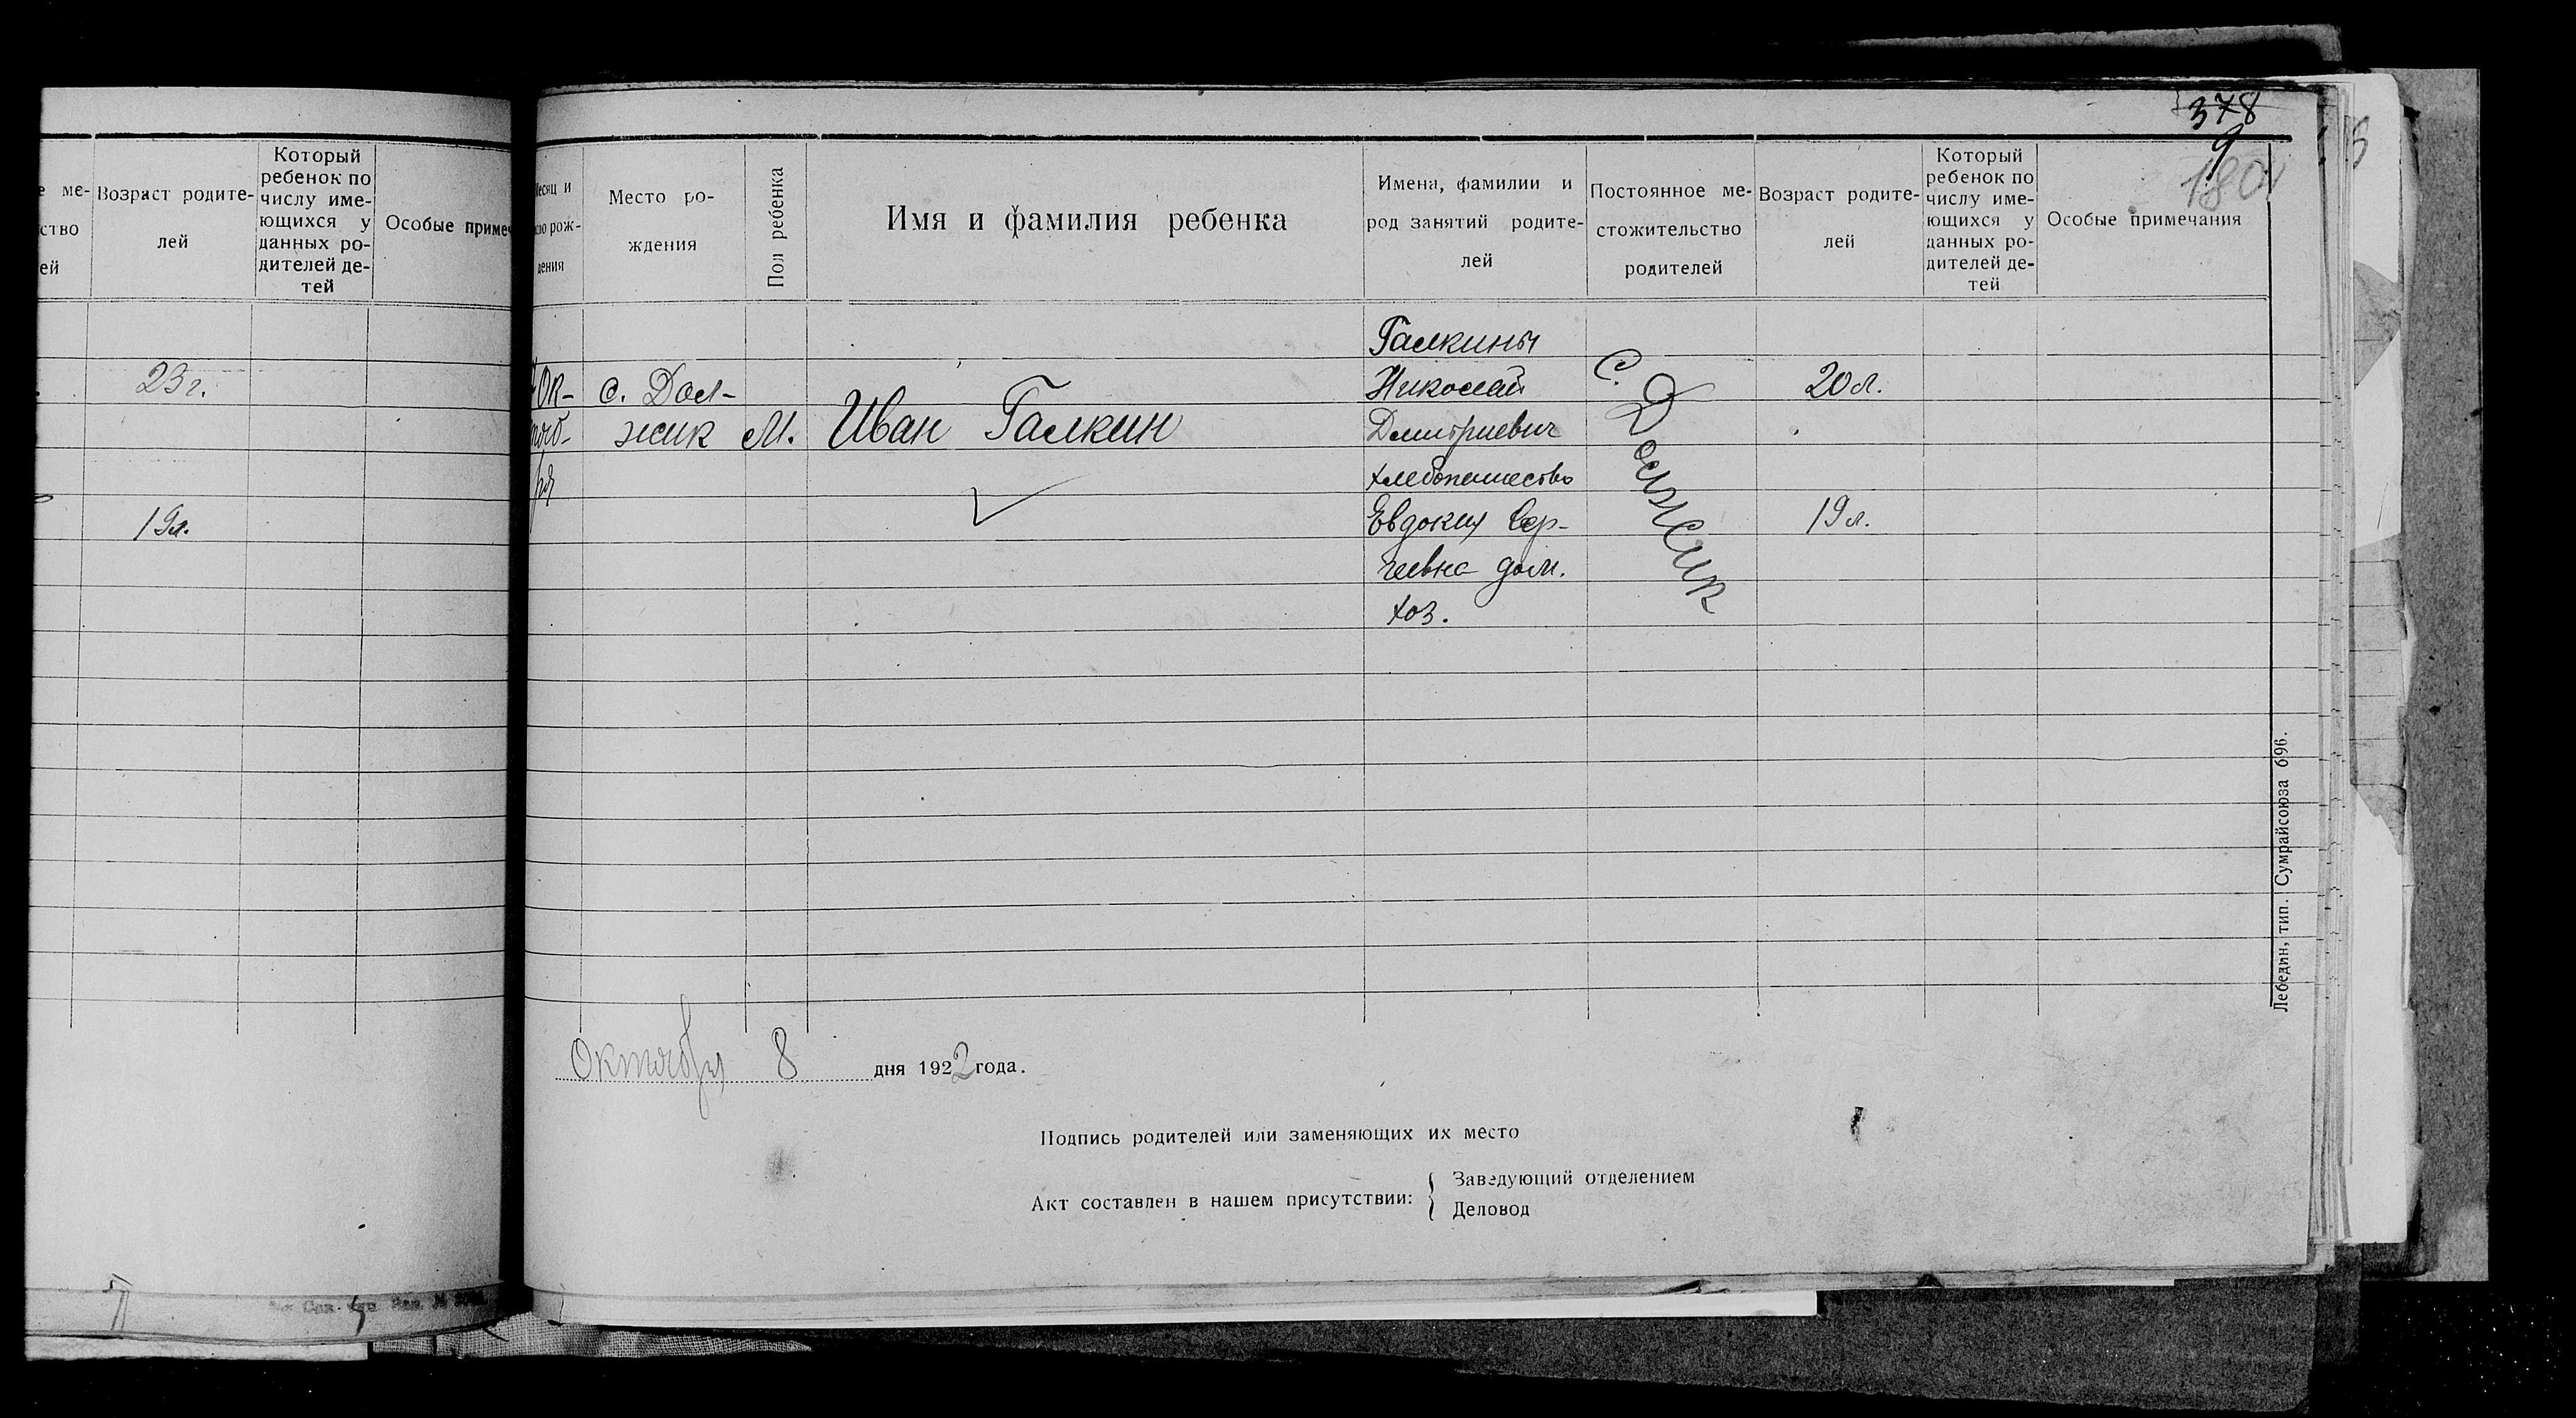 е ме-
ство
ей
Возраст родите-
лей
Который
ребенок по
числу име-
ющихся у
данных ро-
дителей де-
тей
Особые примеч
23 г.
19 л.
378
9
180
Месяц и
число рож-
дения
Место ро-
ждения
Пол ребенка
Имя и фамилия ребенка
Имена, фамилии и
род занятий родите-
лей
Постоянное ме-
стожительство
родителей
Возраст родите-
лей
Который
ребенок по
числу име-
ющихся у
данных ро-
дителей де-
тей
Особые примечания
Ок-
тяб-
ря
с. Дол-
жик
М.
Иван Галкин
Галкины
Николай
Дмитриевич
хлебопашество
Евдокия Сер-
геевна дом.
хоз.
С. Должик
20 л.
19 л.
Октября 8 дня 1922 года.
Подпись родителей или заменяющих их место
Акт составлен в нашем присутствии:
Заведующий отделением
Деловод
Лебедин, тип. Сумрайсоюза 696.